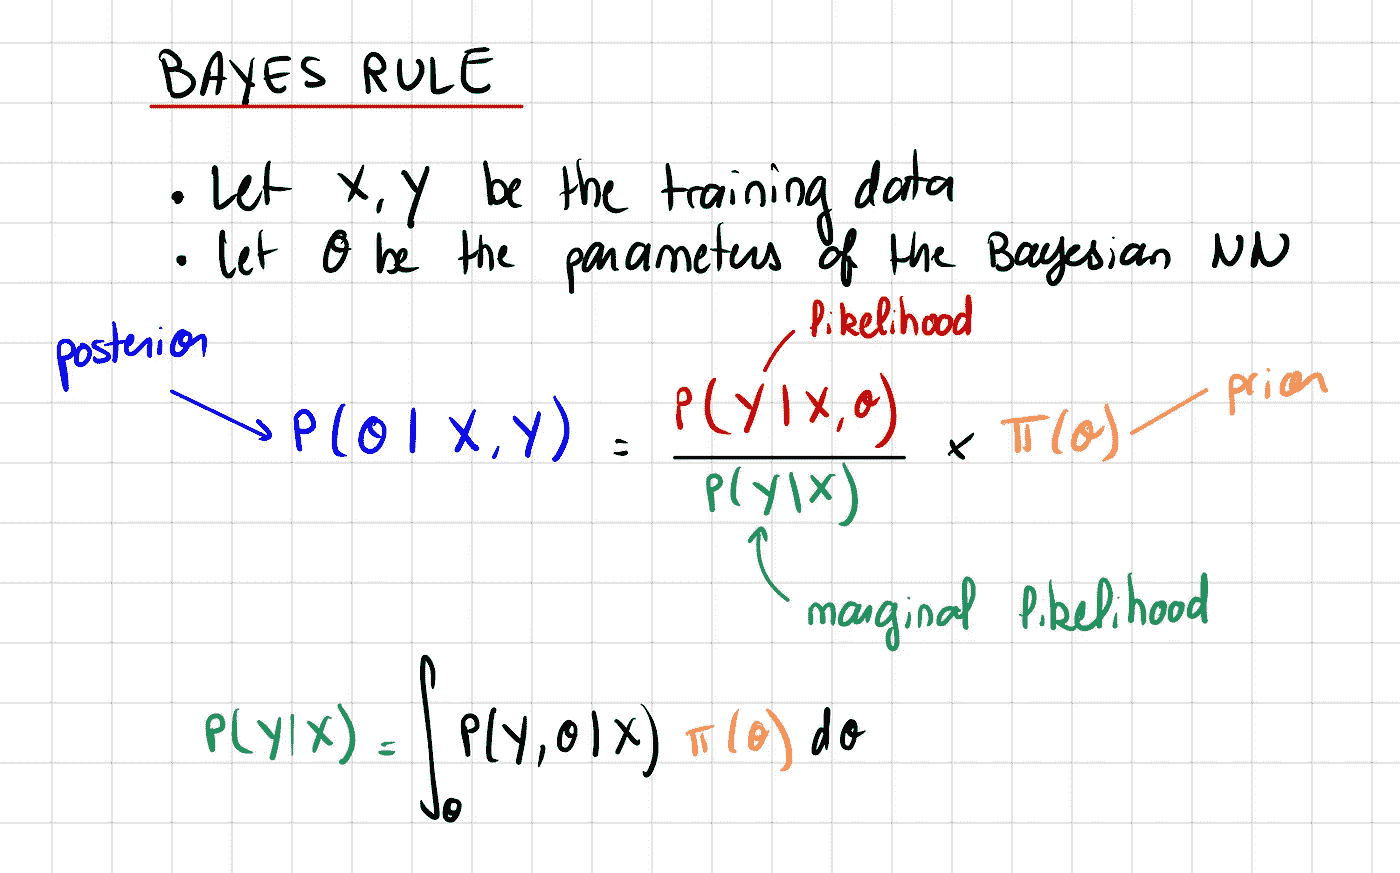 BAYES RULE
• Let X, Y be the training data
• Let θ be the parameters of the Bayesian NN
likelihood
posterior
prior
P(θ | X, Y) = P(Y | X, θ) / P(Y | X) × π(θ)
marginal likelihood
P(Y|X) = ∫_θ P(Y, θ | X) π(θ) dθ